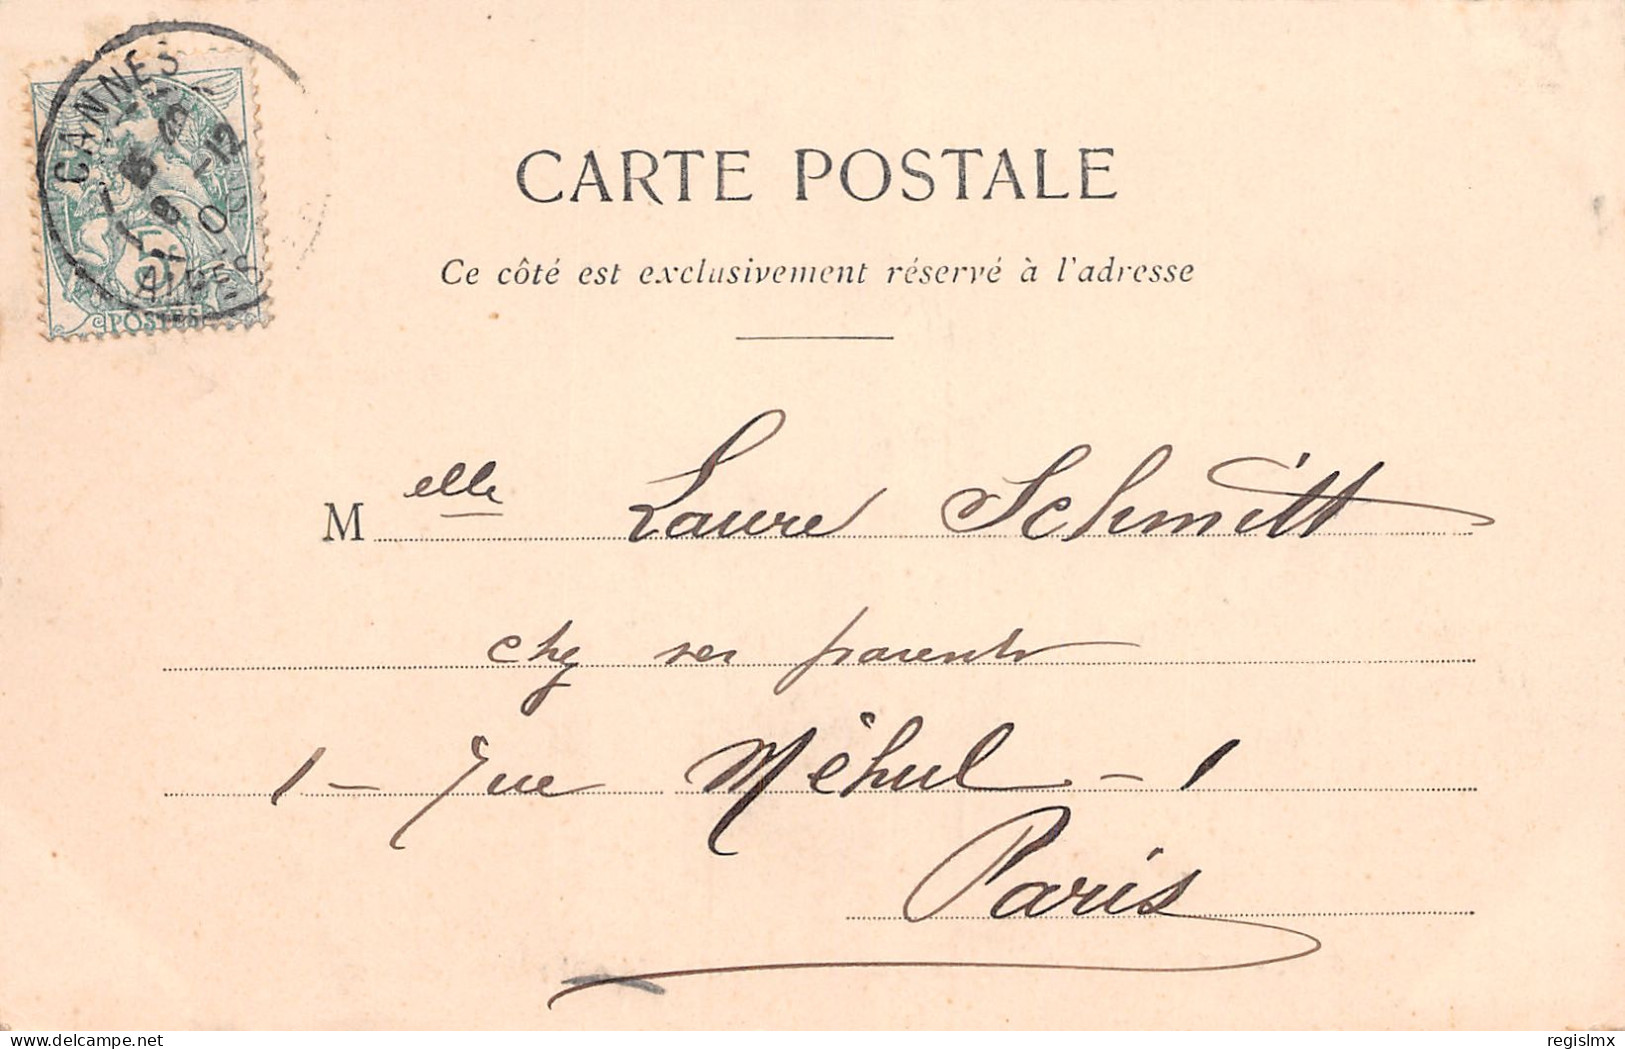 CANNES
5c
POSTES
CARTE POSTALE
Ce côté est exclusivement réservé à l'adresse
Melle Laure Schmitt
chez ses parents
1 – rue Méhul – 1
Paris
delcampe.net
regislmx